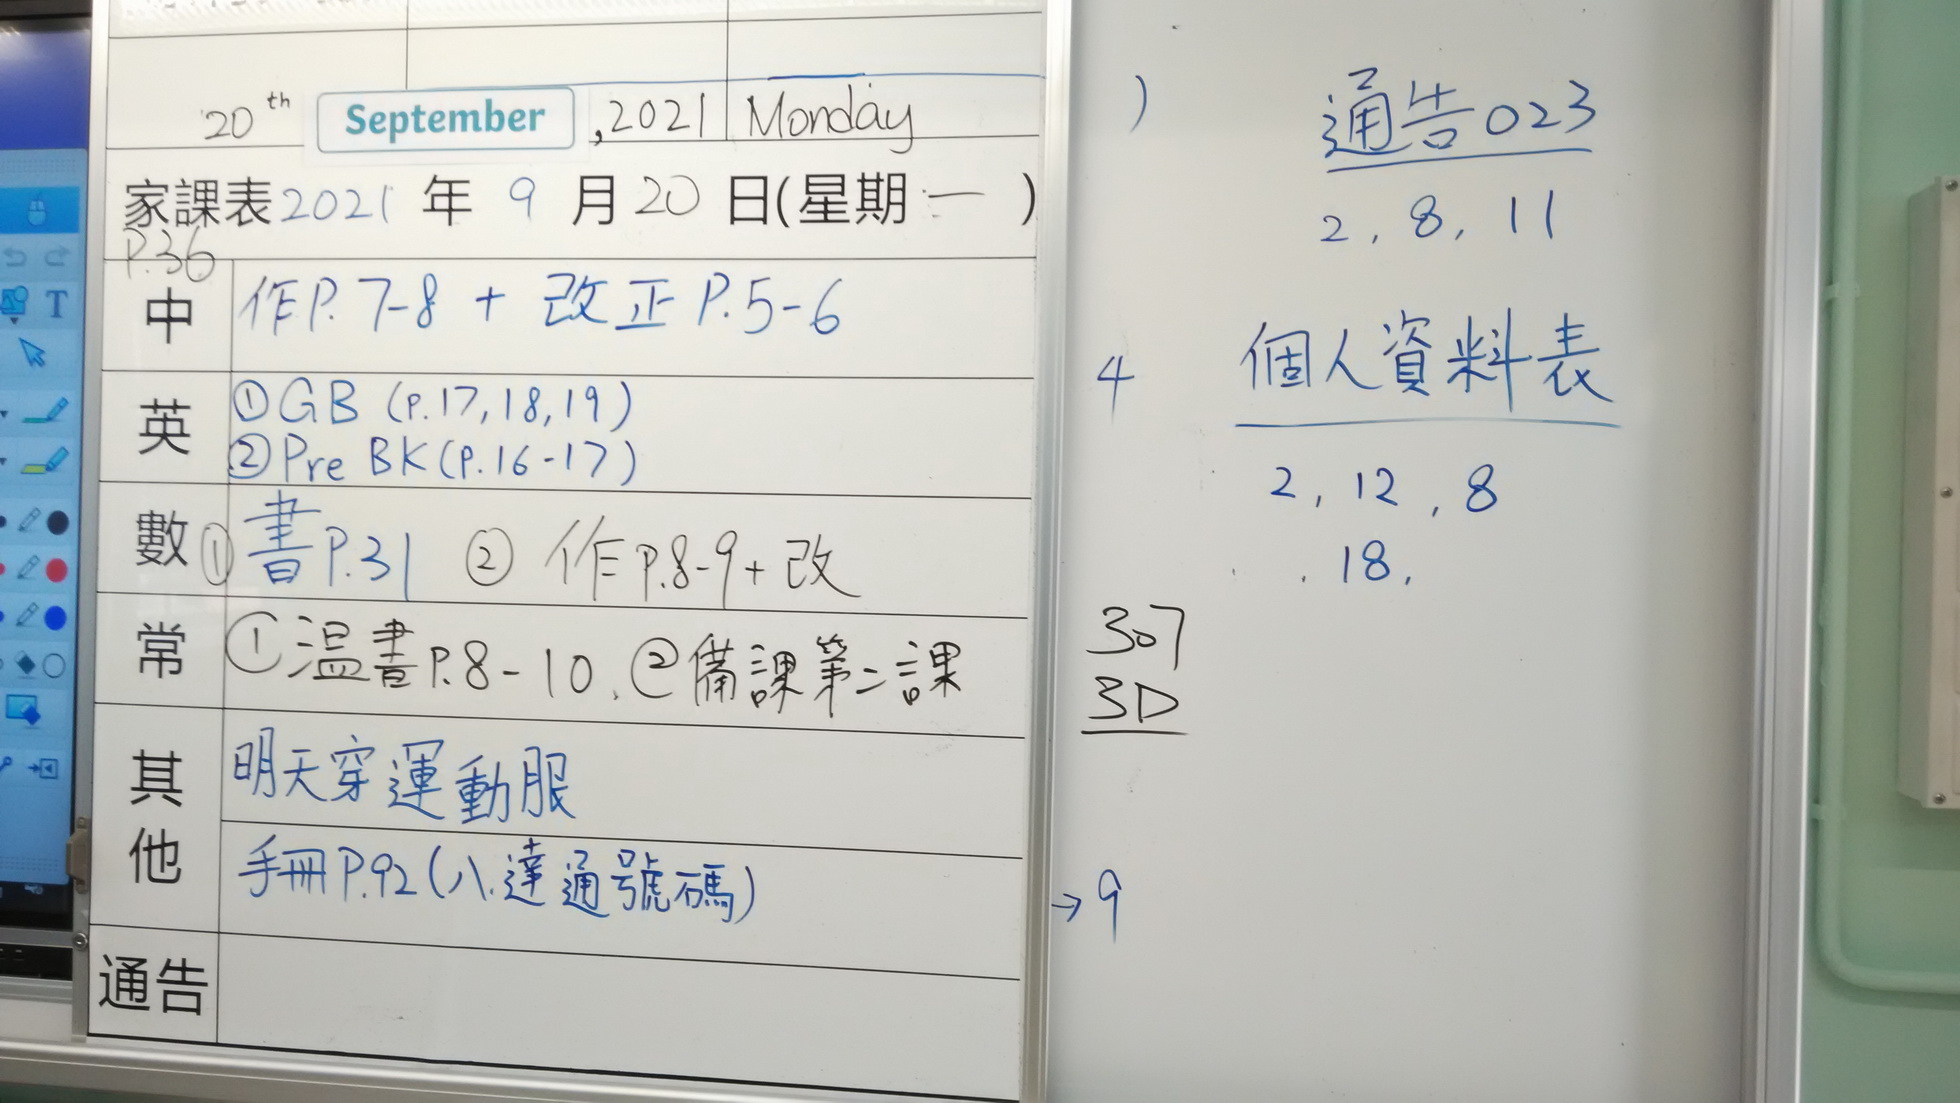 20th September, 2021 Monday
家課表2021年9月20日(星期一)
P.36
中 作P.7-8 + 改正P.5-6
英 ①GB (p.17,18,19)
②Pre BK(p.16-17)
數 ①書P.31 ② 作P.8-9+改
常 ①溫書P.8-10. ②備課第二課
其他 明天穿運動服
手冊P.92(八達通號碼)
通告
)
通告023
2, 8, 11
4
個人資料表
2, 12, 8
18,
307
3D
→9
T